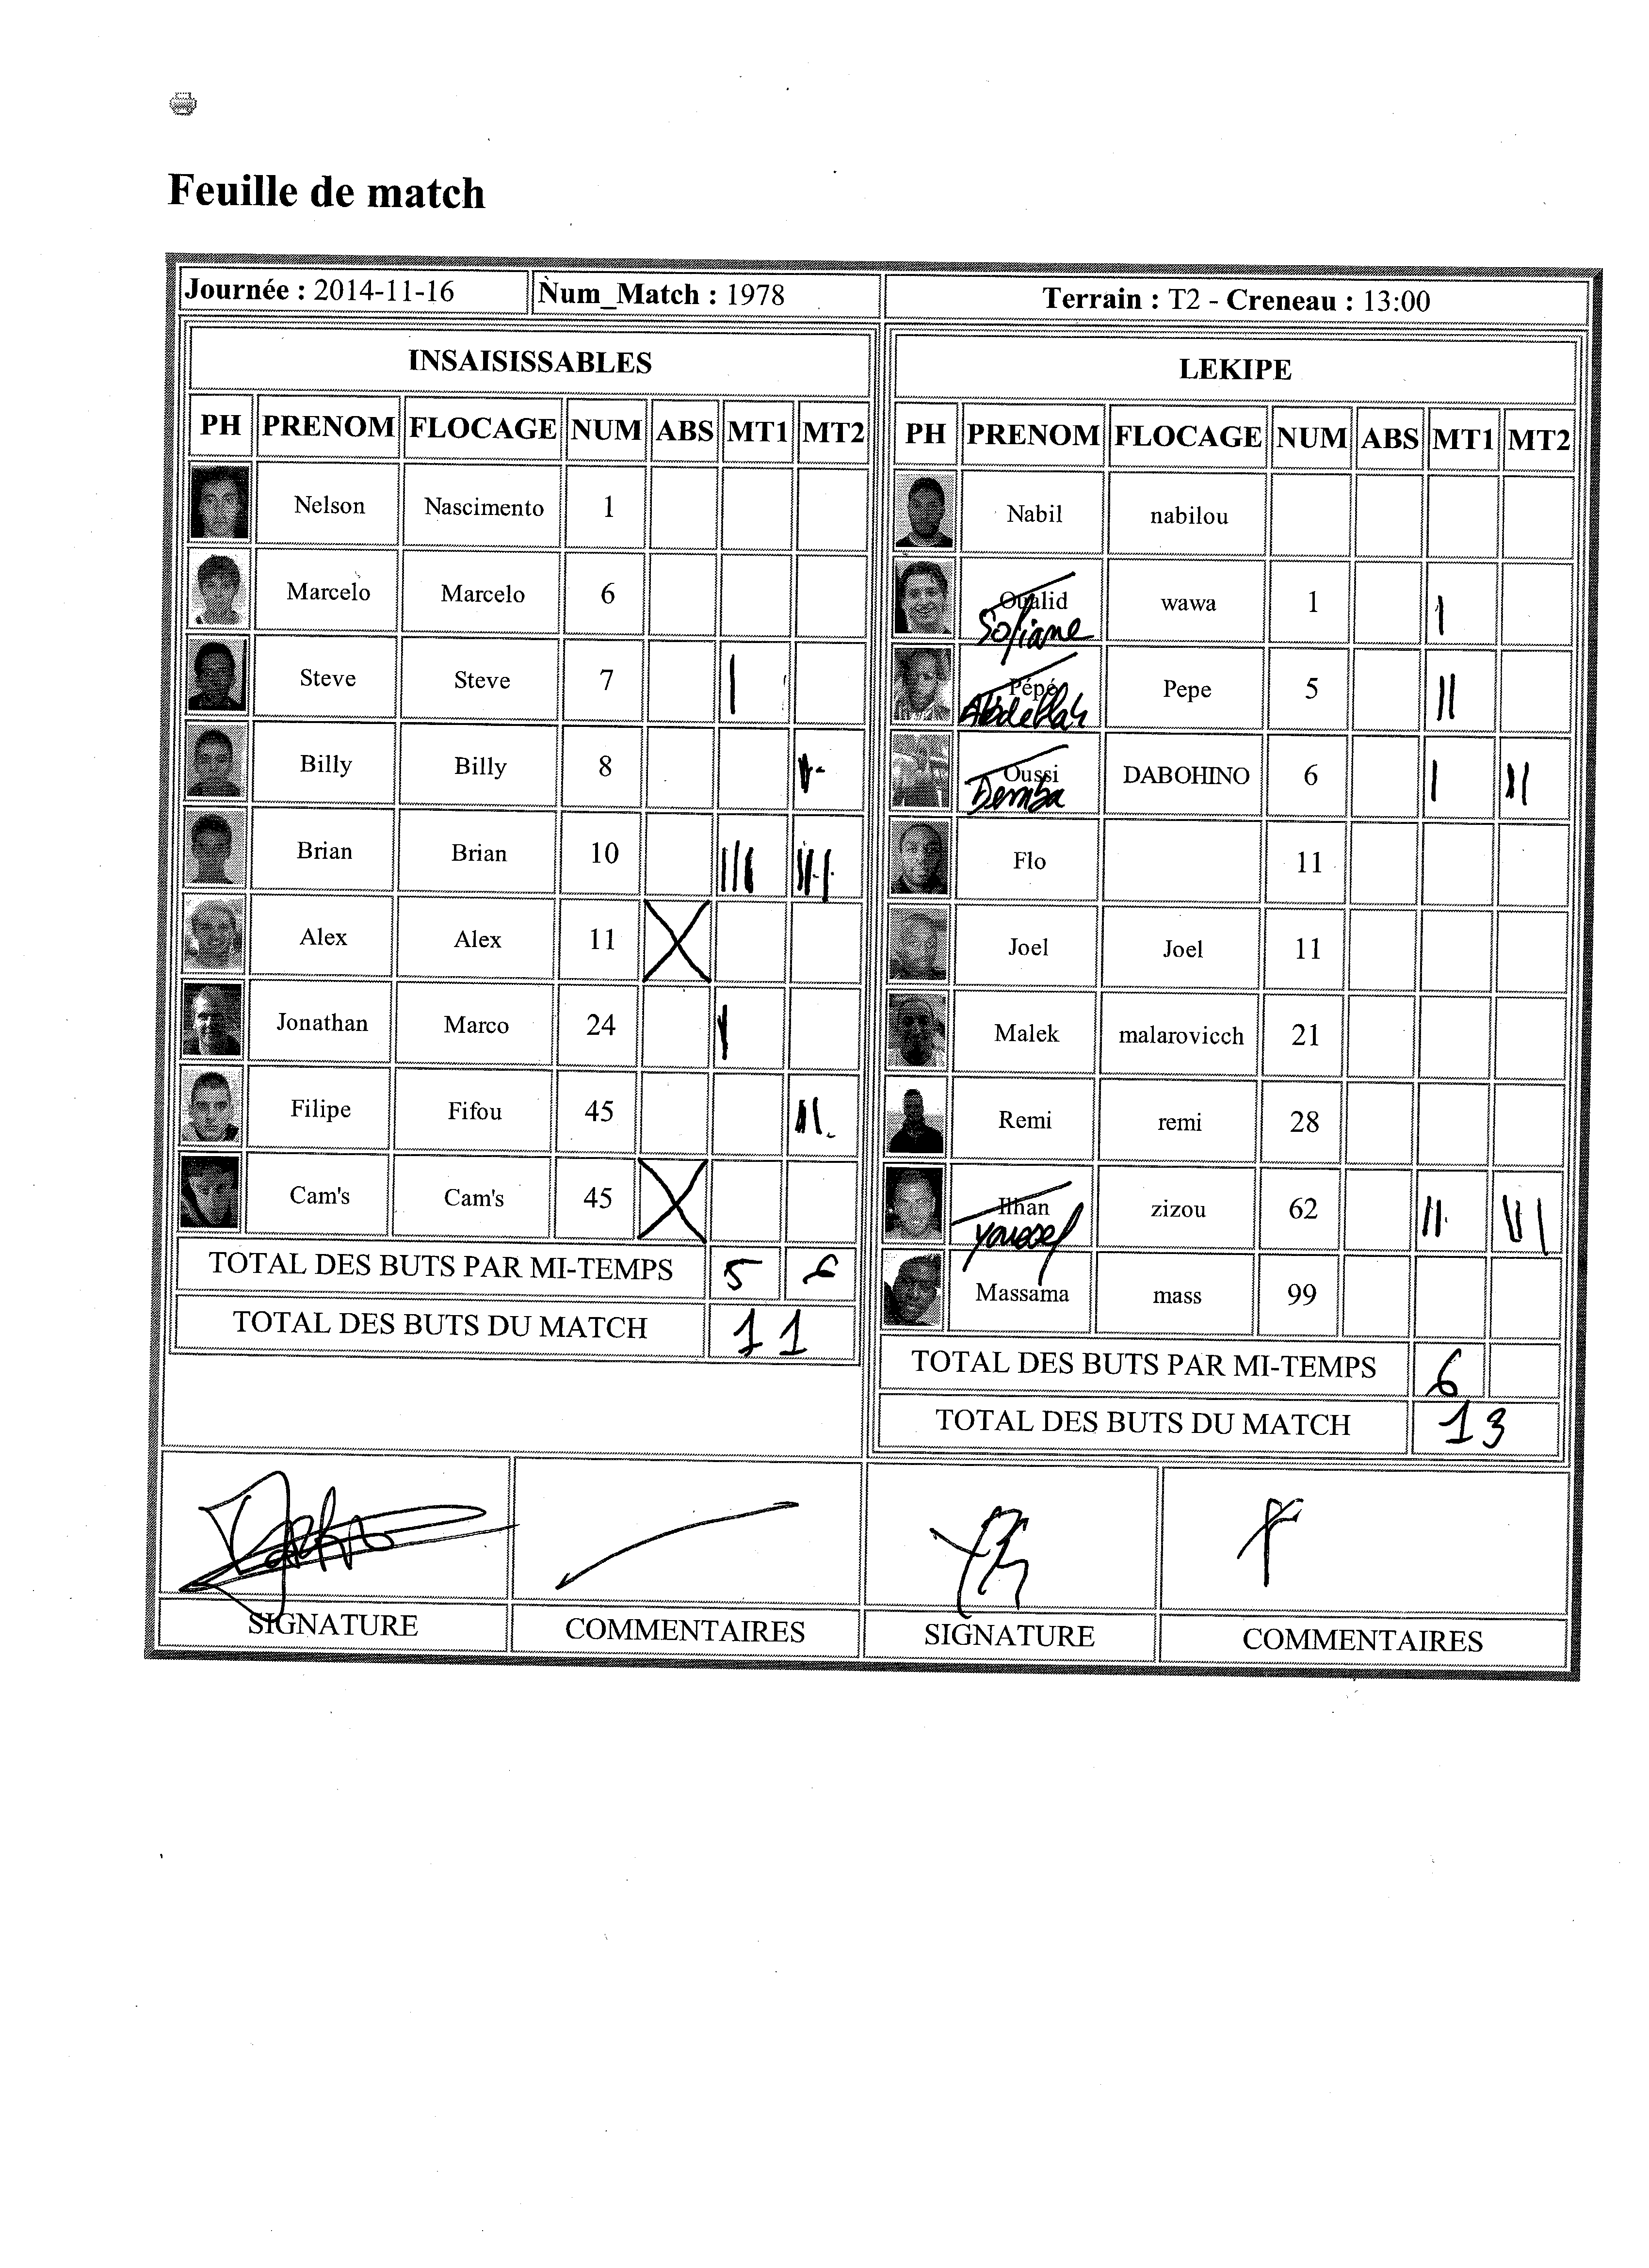 Feuille de match
Journée : 2014-11-16 Num_Match : 1978 Terrain : T2 - Creneau : 13:00
INSAISISSABLES
PH PRENOM FLOCAGE NUM ABS MT1 MT2
Nelson Nascimento 1
Marcelo Marcelo 6
Steve Steve 7 |
Billy Billy 8
Brian Brian 10 |||
Alex Alex 11 X
Jonathan Marco 24 |
Filipe Fifou 45
Cam's Cam's 45 X
TOTAL DES BUTS PAR MI-TEMPS 5 6
TOTAL DES BUTS DU MATCH 11
LEKIPE
PH PRENOM FLOCAGE NUM ABS MT1 MT2
Nabil nabilou
Oualid wawa 1 |
Sofiane
Pépé Pepe 5 ||
Abdellah
Oussi DABOHINO 6 | ||
Demba
Flo 11
Joel Joel 11
Malek malarovicch 21
Remi remi 28
Ilhan zizou 62 || |||
Youssef
Massama mass 99
TOTAL DES BUTS PAR MI-TEMPS 6
TOTAL DES BUTS DU MATCH 13
SIGNATURE COMMENTAIRES SIGNATURE COMMENTAIRES